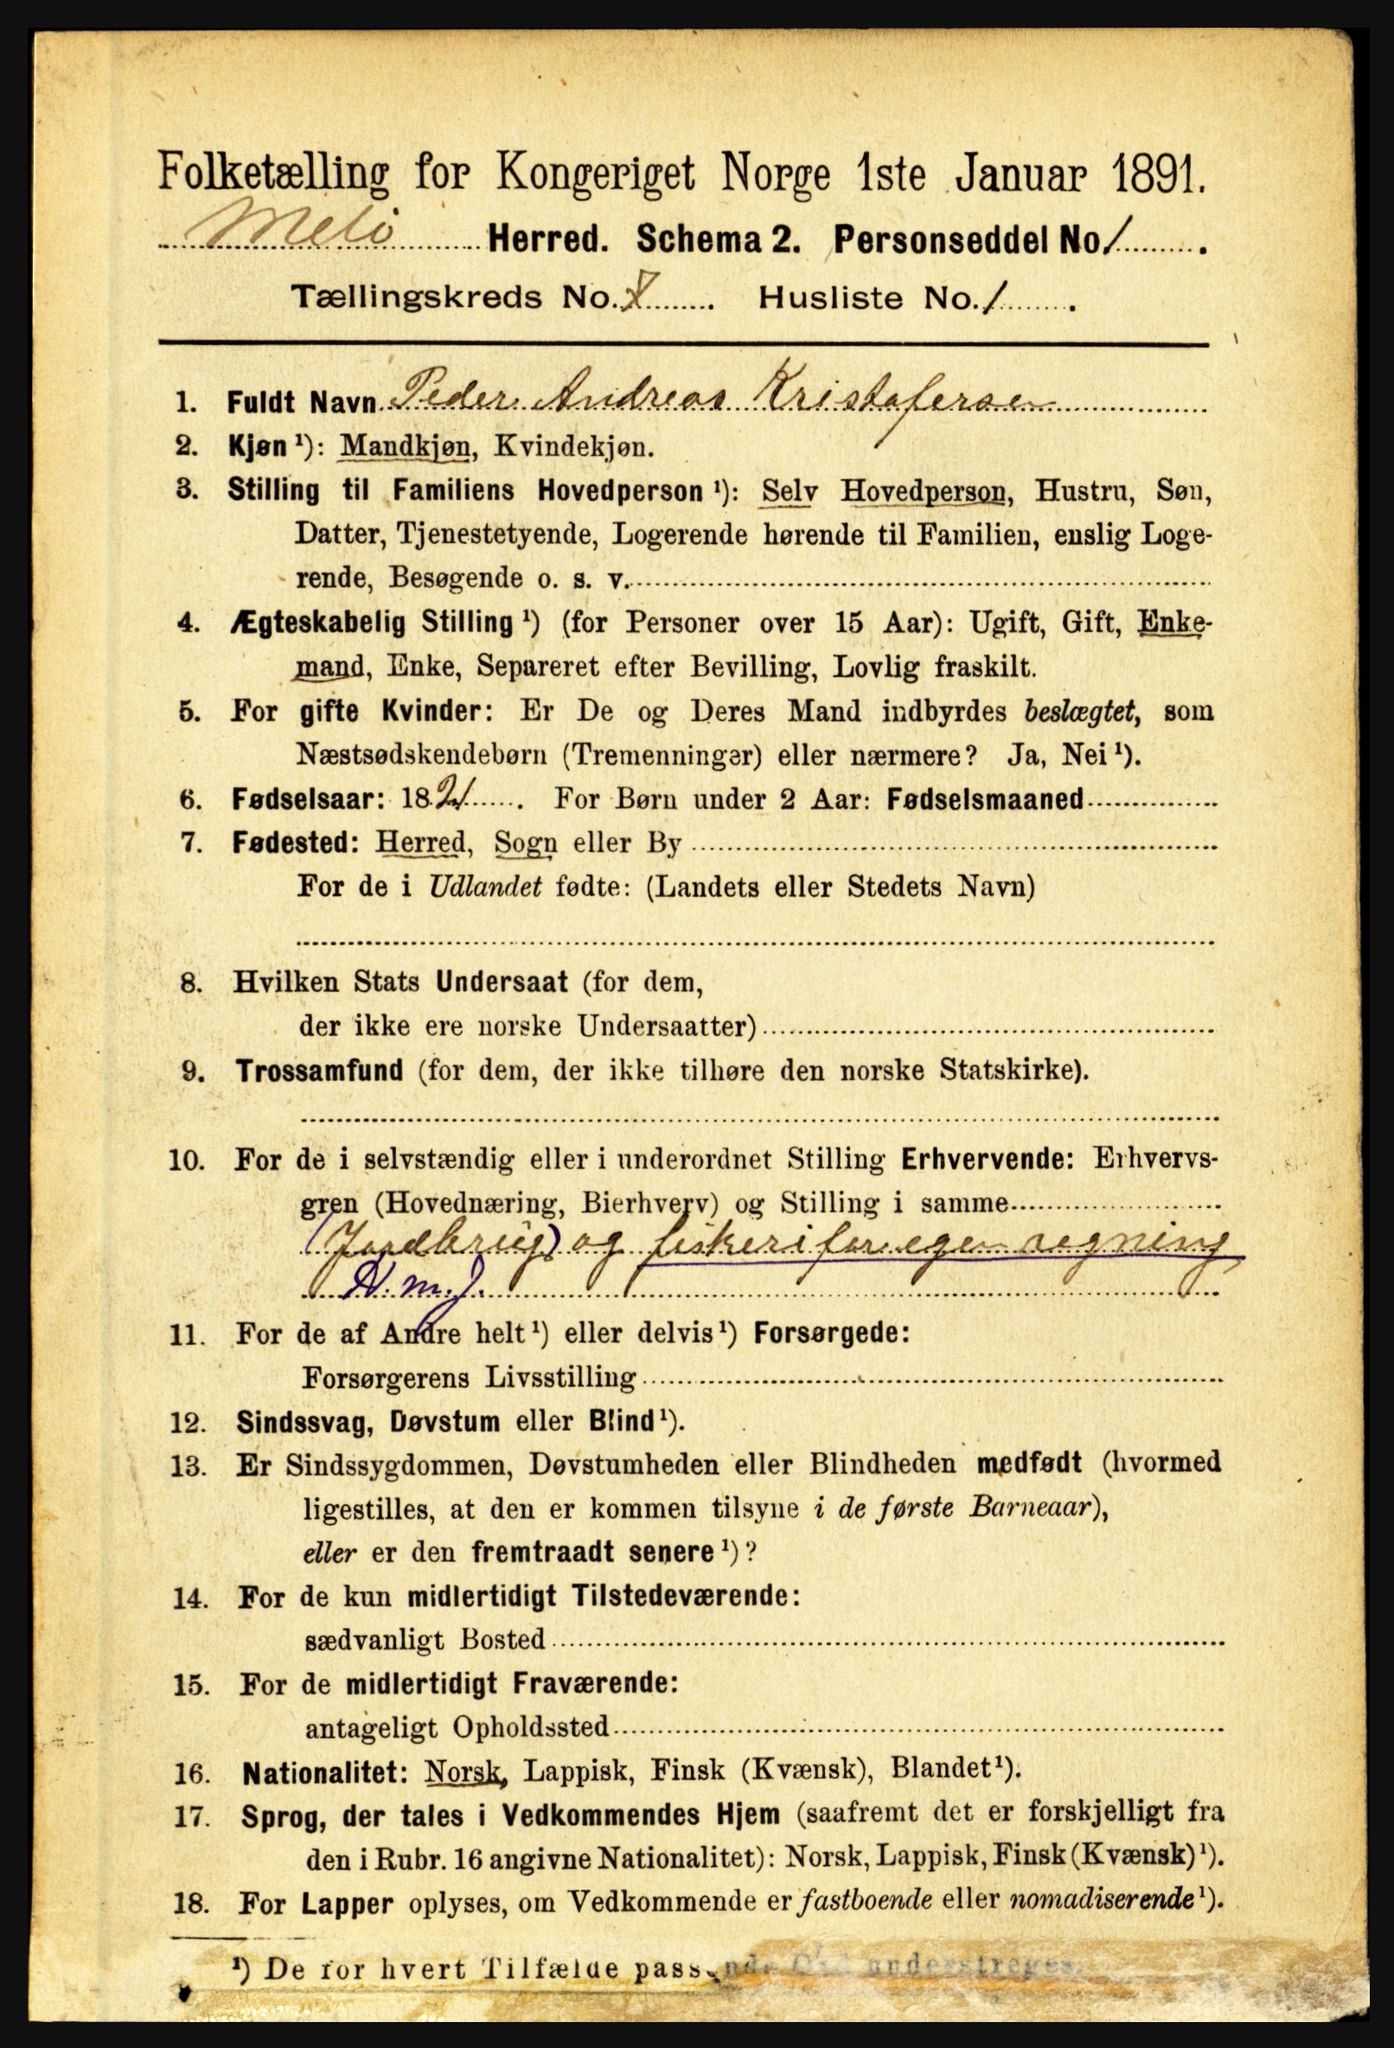 Folketælling for Kongeriget Norge 1ste Januar 1891.
Melö Herred. Schema 2. Personseddel No 1.
Tællingskreds No. . Husliste No. 1.
1. Fuldt Navn Peder Andreas Kristofersen
2. Kjøn ¹): Mandkjøn, Kvindekjøn.
3. Stilling til Familiens Hovedperson ¹): Selv Hovedperson, Hustru, Søn,
Datter, Tjenestetyende, Logerende hørende til Familien, enslig Loge-
rende, Besøgende o. s. v.
4. Ægteskabelig Stilling ¹) (for Personer over 15 Aar): Ugift, Gift, Enke-
mand, Enke, Separeret efter Bevilling, Lovlig fraskilt.
5. For gifte Kvinder: Er De og Deres Mand indbyrdes beslægtet, som
Næstsødskendebørn (Tremenninger) eller nærmere? Ja, Nei ¹).
6. Fødselsaar: 1821. For Børn under 2 Aar: Fødselsmaaned
7. Fødested: Herred, Sogn eller By
For de i Udlandet fødte: (Landets eller Stedets Navn)
8. Hvilken Stats Undersaat (for dem,
der ikke ere norske Undersaatter)
9. Trossamfund (for dem, der ikke tilhøre den norske Statskirke).
10. For de i selvstændig eller i underordnet Stilling Erhvervende: Erhvervs-
gren (Hovednæring, Bierhverv) og Stilling i samme
(Jordbrug) og fiskeri for egen regning
H. m. J.
11. For de af Andre helt ¹) eller delvis ¹) Forsørgede:
Forsørgerens Livsstilling
12. Sindssvag, Døvstum eller Blind ¹).
13. Er Sindssygdommen, Døvstumheden eller Blindheden medfødt (hvormed
ligestilles, at den er kommen tilsyne i de første Barneaar),
eller er den fremtraadt senere ¹)?
14. For de kun midlertidigt Tilstedeværende:
sædvanligt Bosted
15. For de midlertidigt Fraværende:
antageligt Opholdssted
16. Nationalitet: Norsk, Lappisk, Finsk (Kvænsk), Blandet ¹).
17. Sprog, der tales i Vedkommendes Hjem (saafremt det er forskjelligt fra
den i Rubr. 16 angivne Nationalitet): Norsk, Lappisk, Finsk (Kvænsk) ¹).
18. For Lapper oplyses, om Vedkommende er fastboende eller nomadiserende ¹).
¹) De for hvert Tilfælde passende Ord understreges.